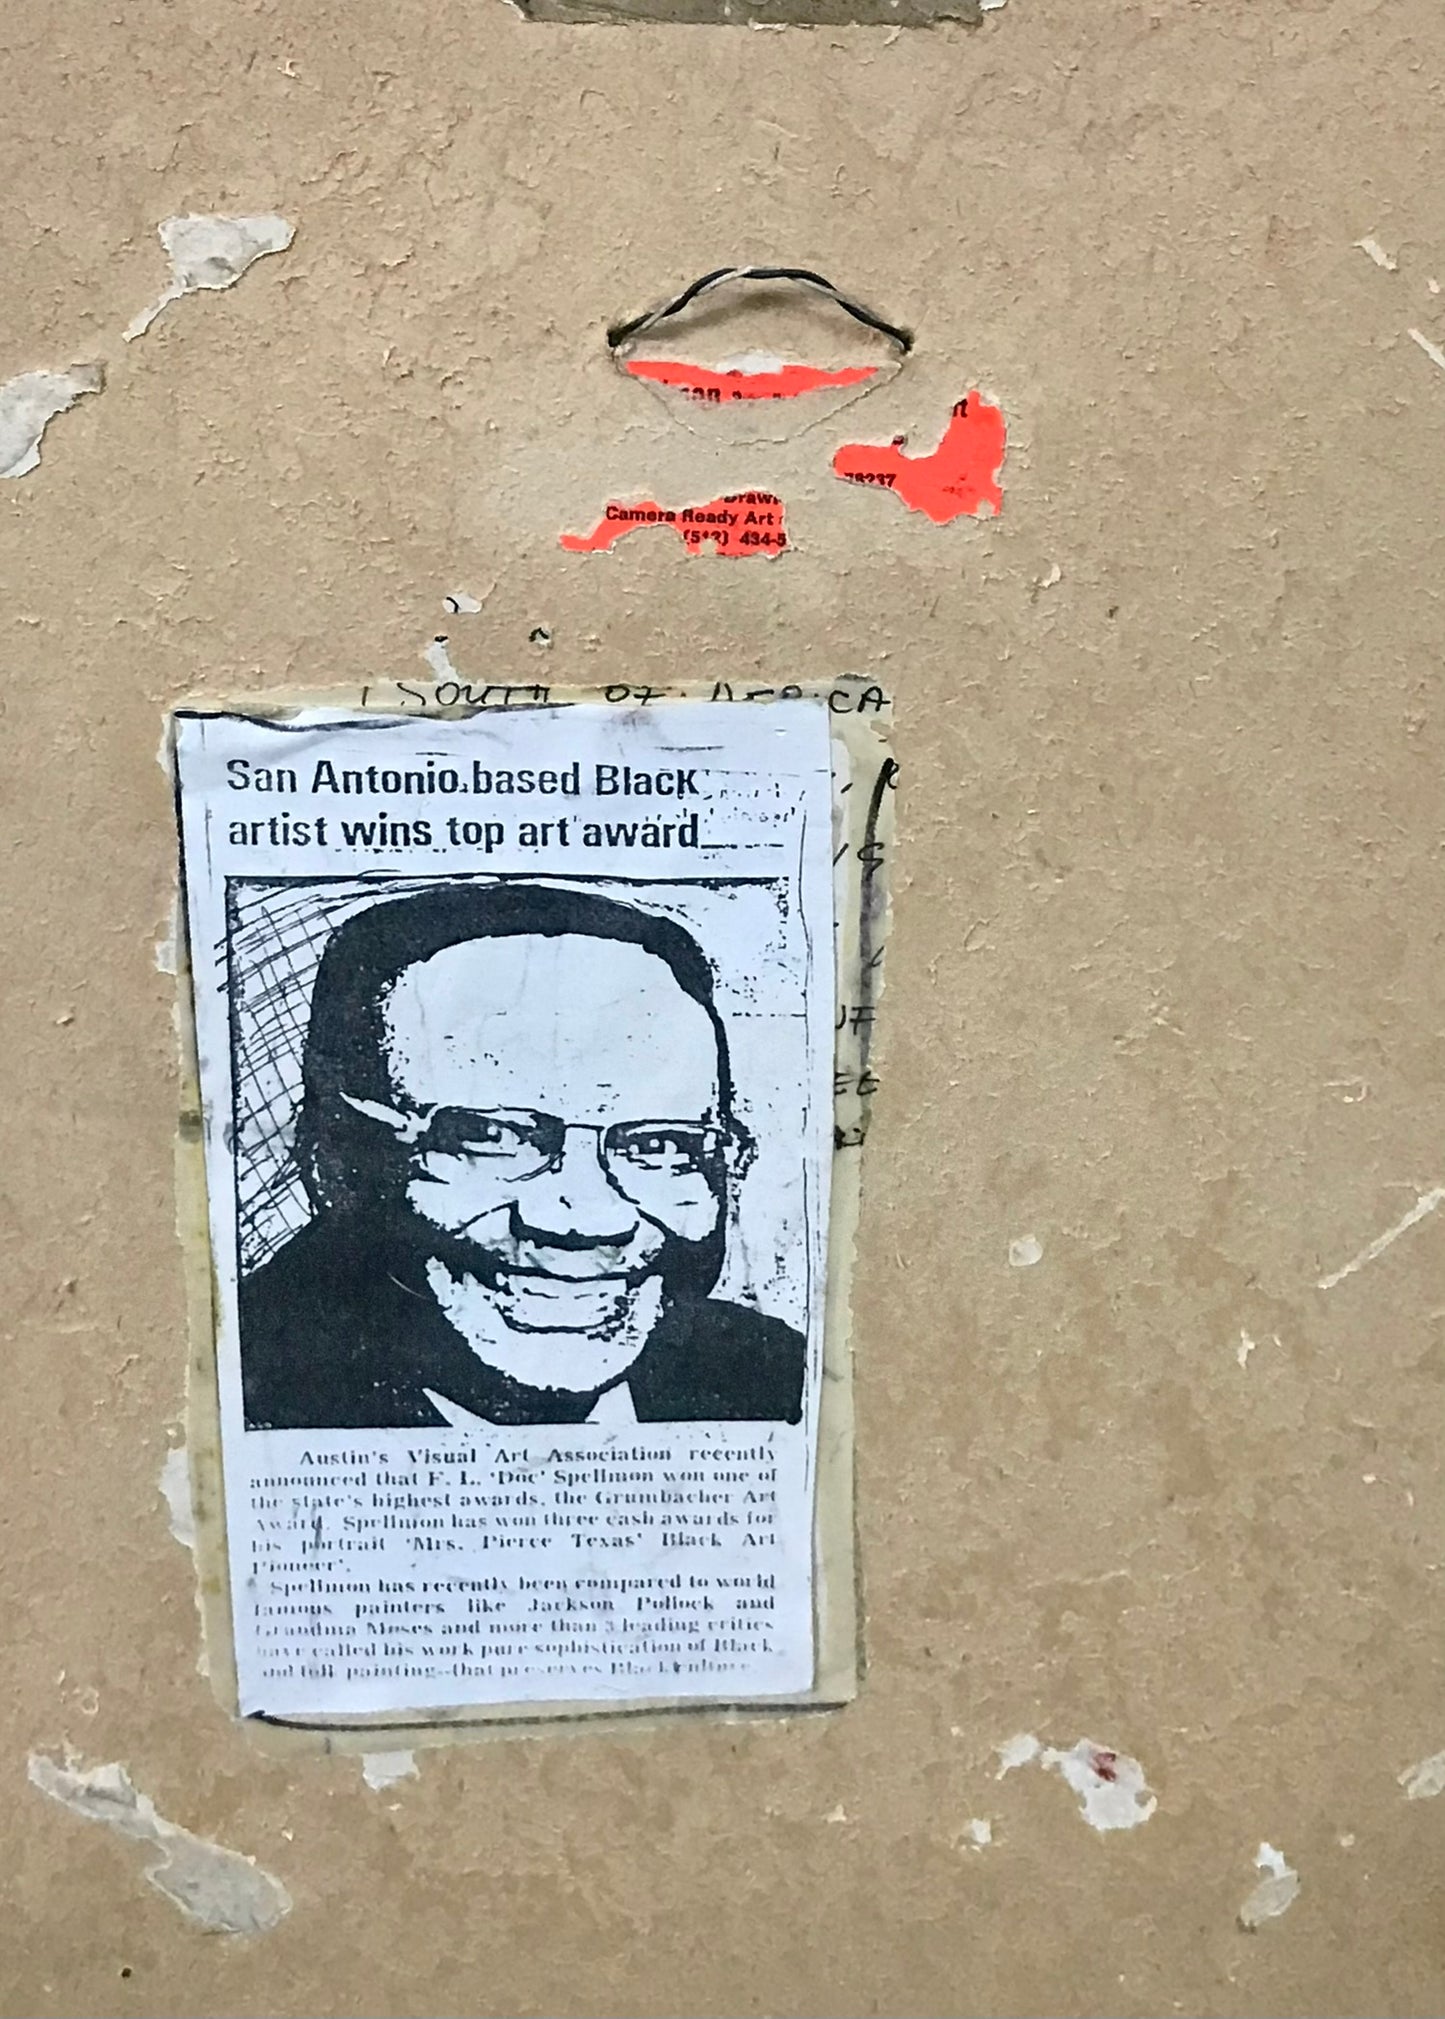 78237
Camera Ready Art
434-5
SOUTH OF AFRICA
San Antonio based Black
artist wins top art award
Austin's Visual Art Association recently
announced that F. L. 'Doc' Spellmon won one of
the state's highest awards, the Grumbacher Art
Award. Spellmon has won three cash awards for
his portrait 'Mrs. Pierce Texas' Black Art
Pioneer'.
Spellmon has recently been compared to world
famous painters like Jackson Pollock and
Grandma Moses and more than 3 leading critics
have called his work pure sophistication of Black
and folk painting--that preserves Black culture.